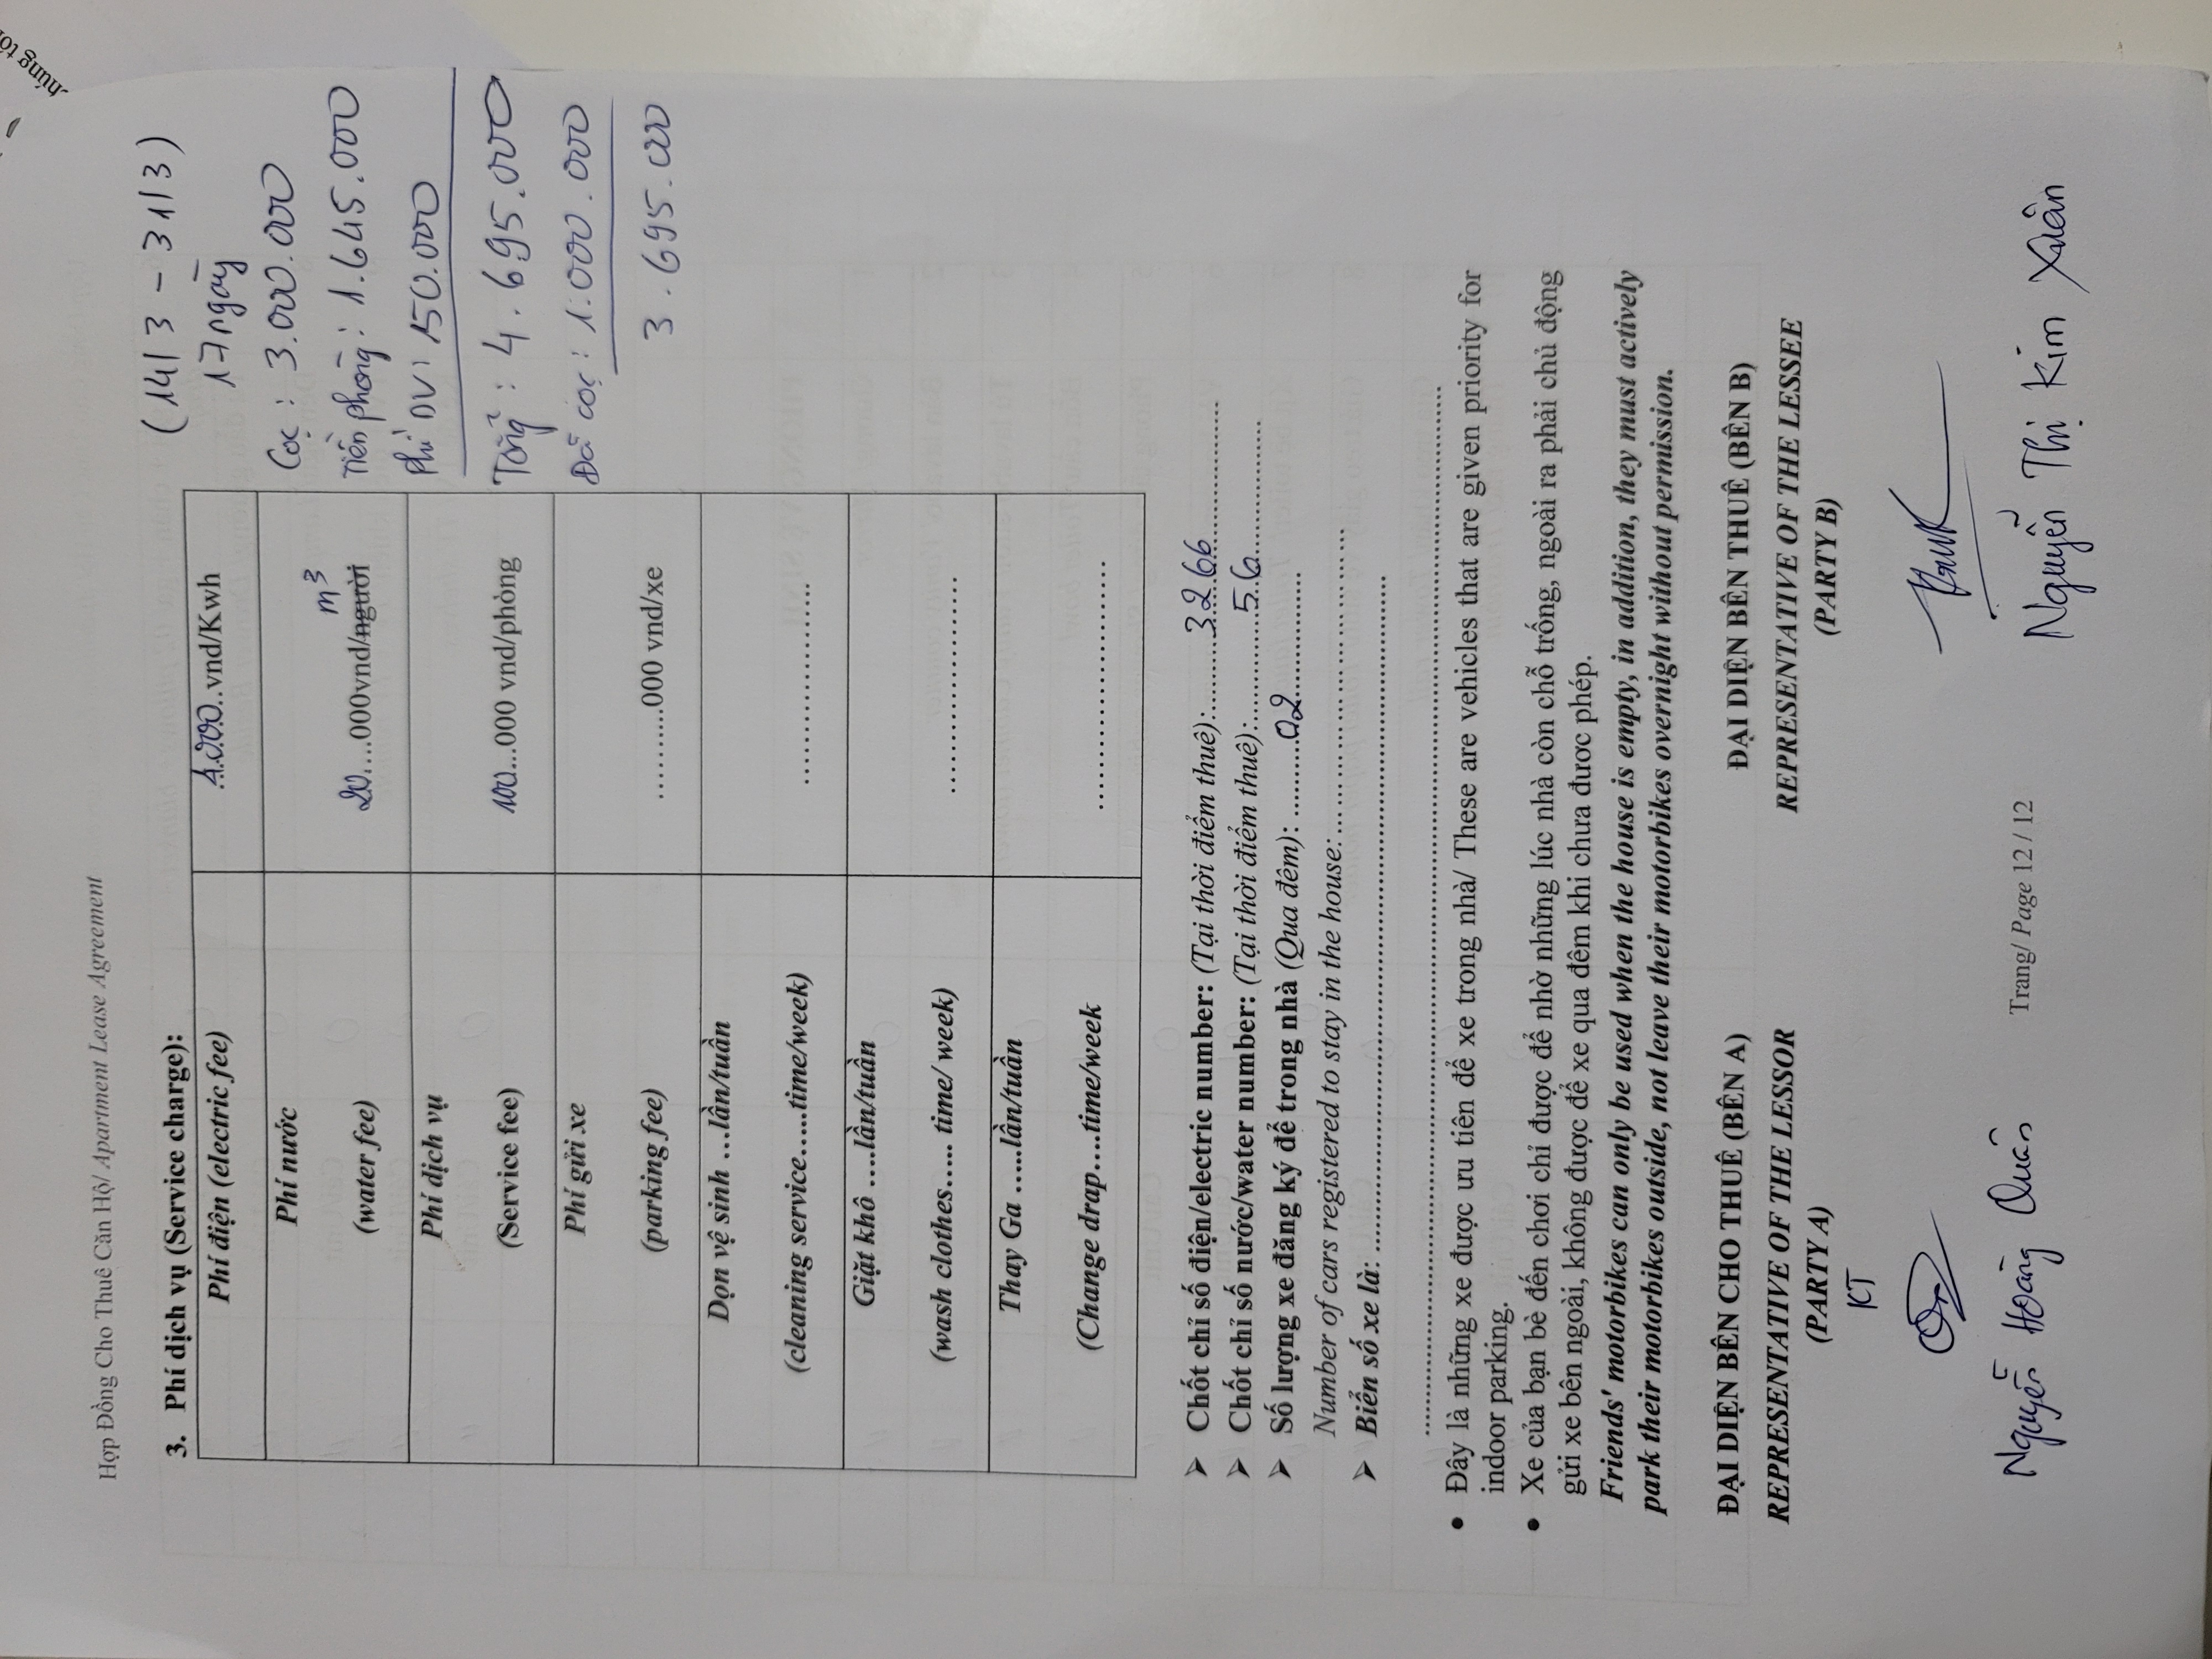 Hợp Đồng Cho Thuê Căn Hộ/ Apartment Lease Agreement
(14/3 - 31/3)
17 ngày
Cọc : 3.000.000
Tiền phòng : 1.645.000
Phí DV : 150.000
Tổng : 4.695.000
Đã cọc : 1.000.000
3.695.000
3. Phí dịch vụ (Service charge):
Phí điện (electric fee) 4.000..vnd/Kwh
Phí nước m3
(water fee) 20....000vnd/người
Phí dịch vụ
(Service fee) 100...000 vnd/phòng
Phí gửi xe
(parking fee) ..........000 vnd/xe
Dọn vệ sinh ...lần/tuần
(cleaning service....time/week) ........................
Giặt khô ....lần/tuần
(wash clothes..... time/ week) ........................
Thay Ga .....lần/tuần
(Change drap....time/week ........................
➤ Chốt chỉ số điện/electric number: (Tại thời điểm thuê):..........3266....................
➤ Chốt chỉ số nước/water number: (Tại thời điểm thuê):..............56....................
➤ Số lượng xe đăng ký để trong nhà (Qua đêm): ..........02..................
Number of cars registered to stay in the house:................................
➤ Biển số xe là: ................................................................
................................................................
• Đây là những xe được ưu tiên để xe trong nhà/ These are vehicles that are given priority for
indoor parking.
• Xe của bạn bè đến chơi chỉ được để nhờ những lúc nhà còn chỗ trống, ngoài ra phải chủ động
gửi xe bên ngoài, không được để xe qua đêm khi chưa được phép.
Friends' motorbikes can only be used when the house is empty, in addition, they must actively
park their motorbikes outside, not leave their motorbikes overnight without permission.
ĐẠI DIỆN BÊN CHO THUÊ (BÊN A) ĐẠI DIỆN BÊN THUÊ (BÊN B)
REPRESENTATIVE OF THE LESSOR REPRESENTATIVE OF THE LESSEE
(PARTY A) (PARTY B)
KT
Nguyễn Hoàng Quân Nguyễn Thị Kim Xuân
Trang/ Page 12 / 12